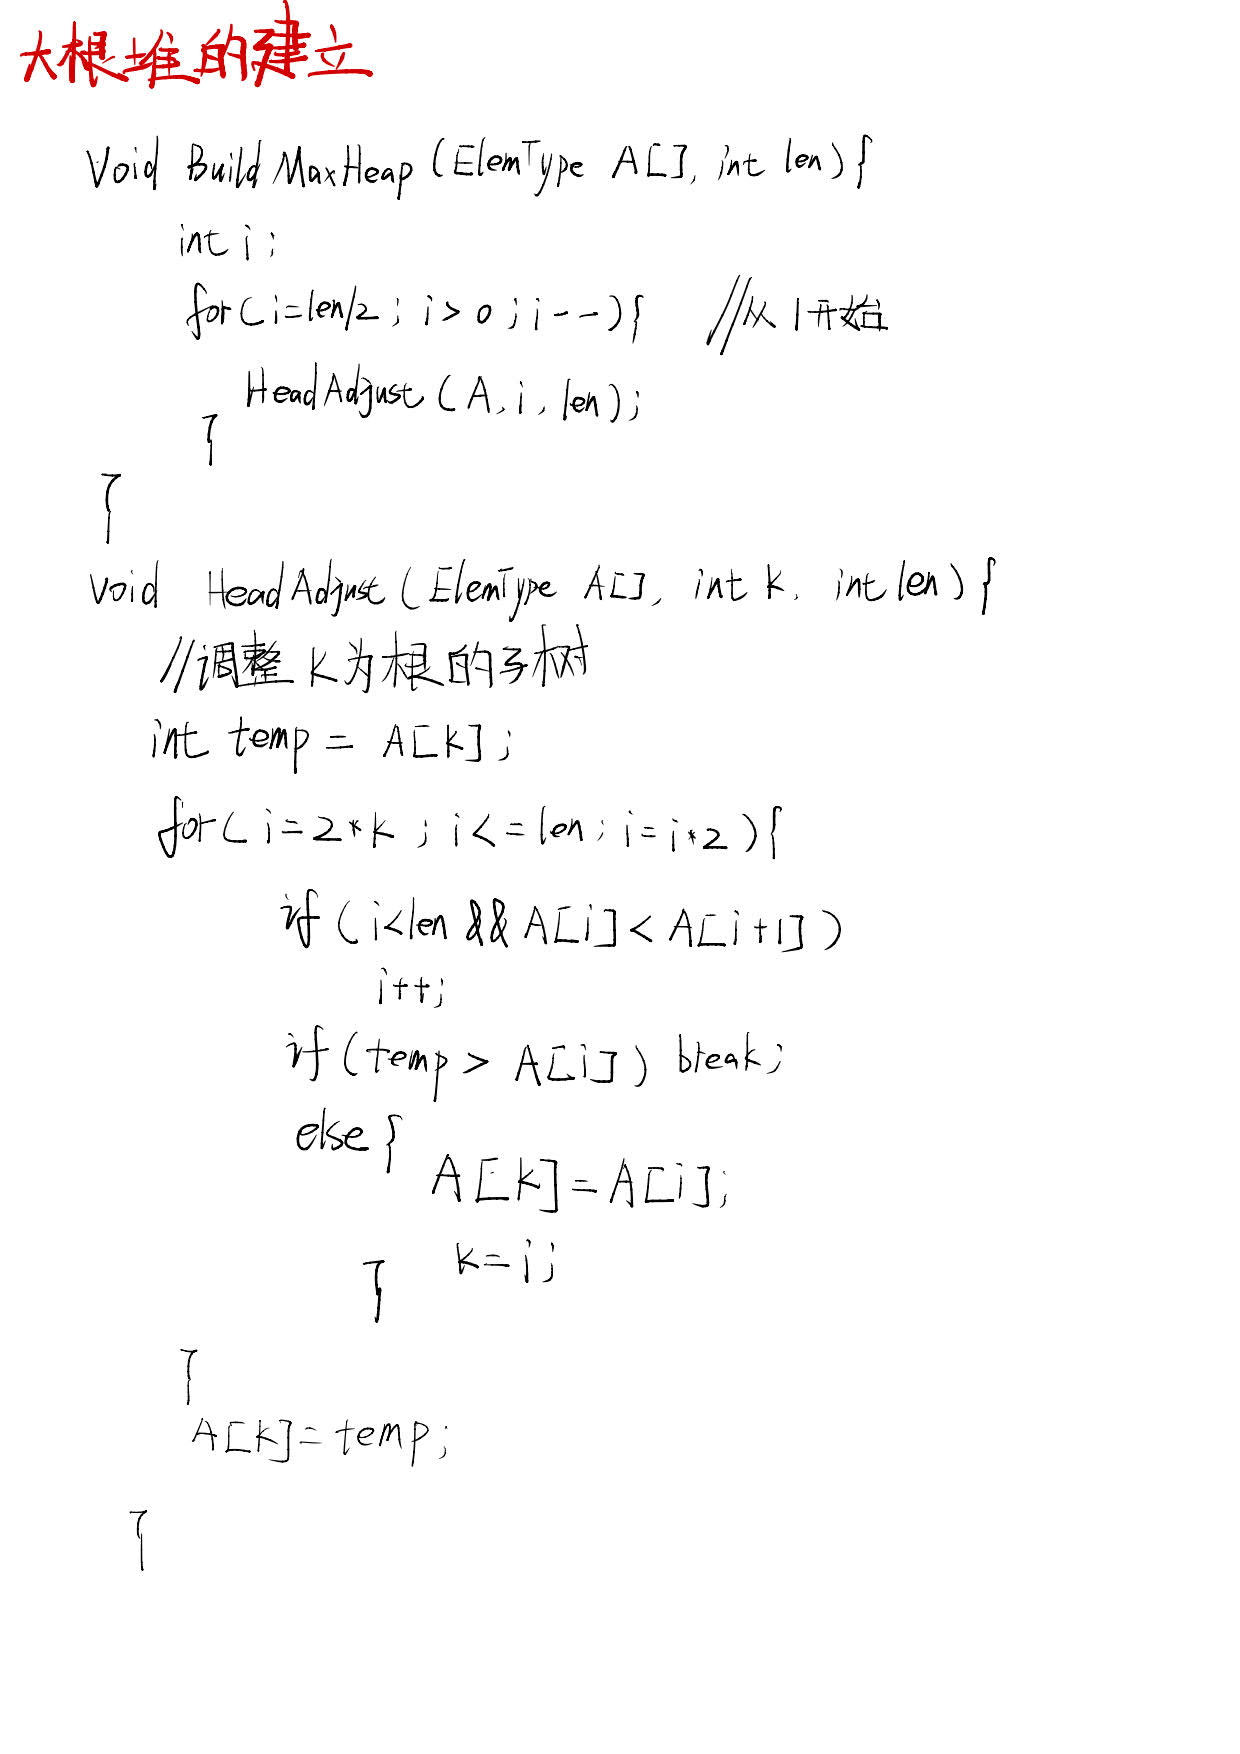 大根堆的建立
void BuildMaxHeap (ElemType A[], int len){
int i;
for(i=len/2; i>0; i--){ //从1开始
HeadAdjust(A,i,len);
}
}
void HeadAdjust(ElemType A[], int k, int len){
//调整k为根的子树
int temp = A[k];
for(i=2*k; i<=len; i=i*2){
if(i<len && A[i]<A[i+1])
i++;
if(temp > A[i]) break;
else{
A[k]=A[i];
k=i;
}
}
A[k]=temp;
}